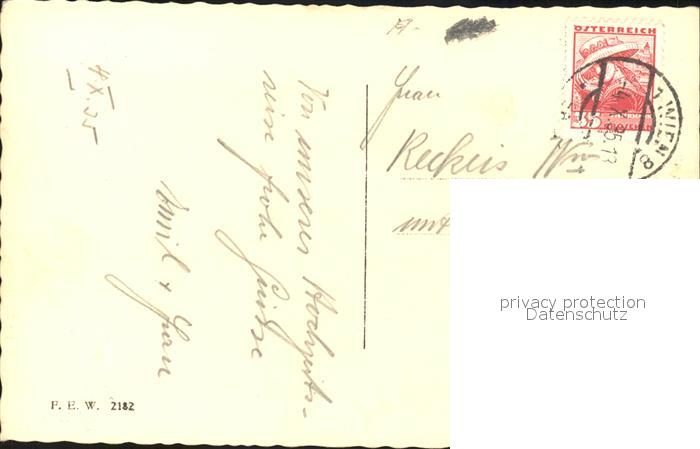 4 X. 35
Von unserer Hochzeits-
reise frohe Grüsse
Emil + Frau
Frau
Reckeis Wwe
ÖSTERREICH
WIEN 8
privacy protection
Datenschutz
F. E. W. 2182